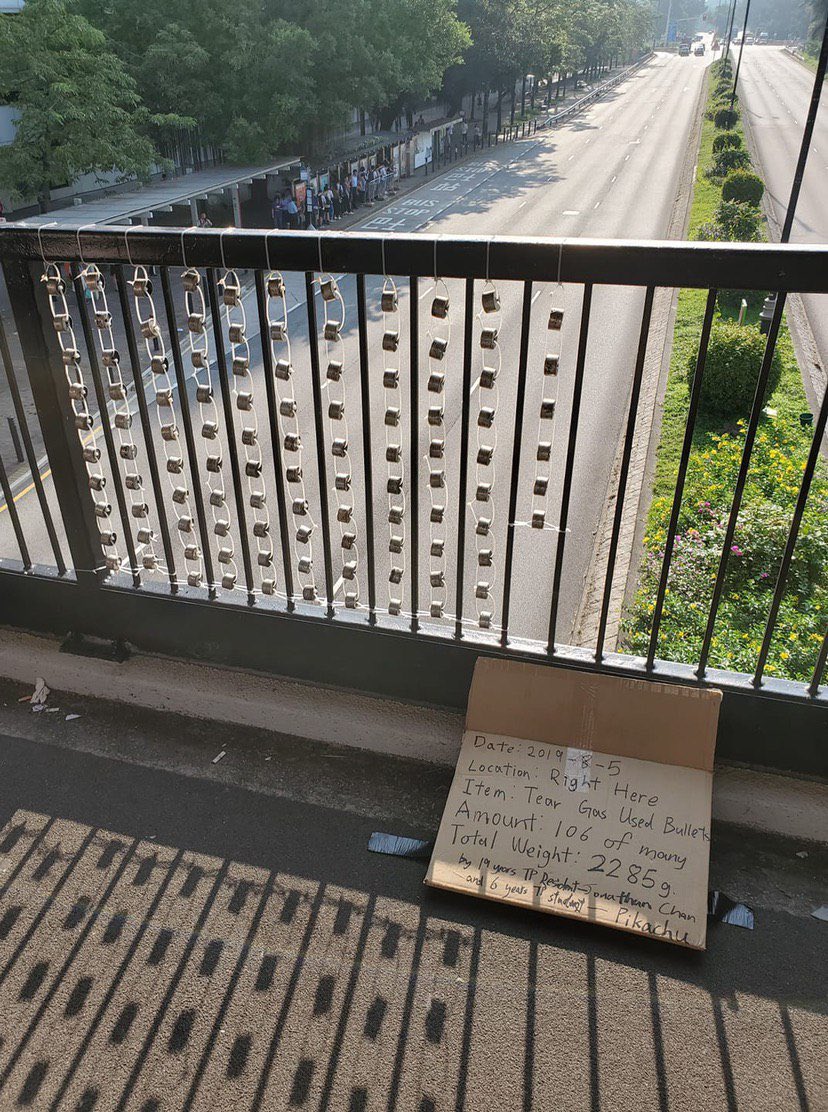 BUS
STOP
Date: 2019-8-5
Location: Right Here
Item: Tear Gas Used Bullets
Amount: 106 of many
Total Weight: 2285g.
by 19 years TP Resident - Jonathan Chan
and 6 years TP student - Pikachu